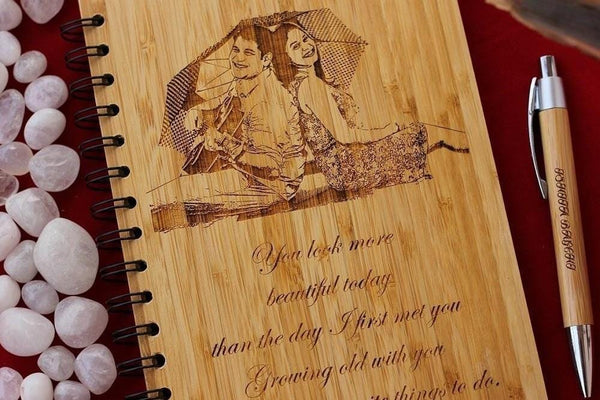 You look more
beautiful today
than the day I first met you
Growing old with you
things to do.